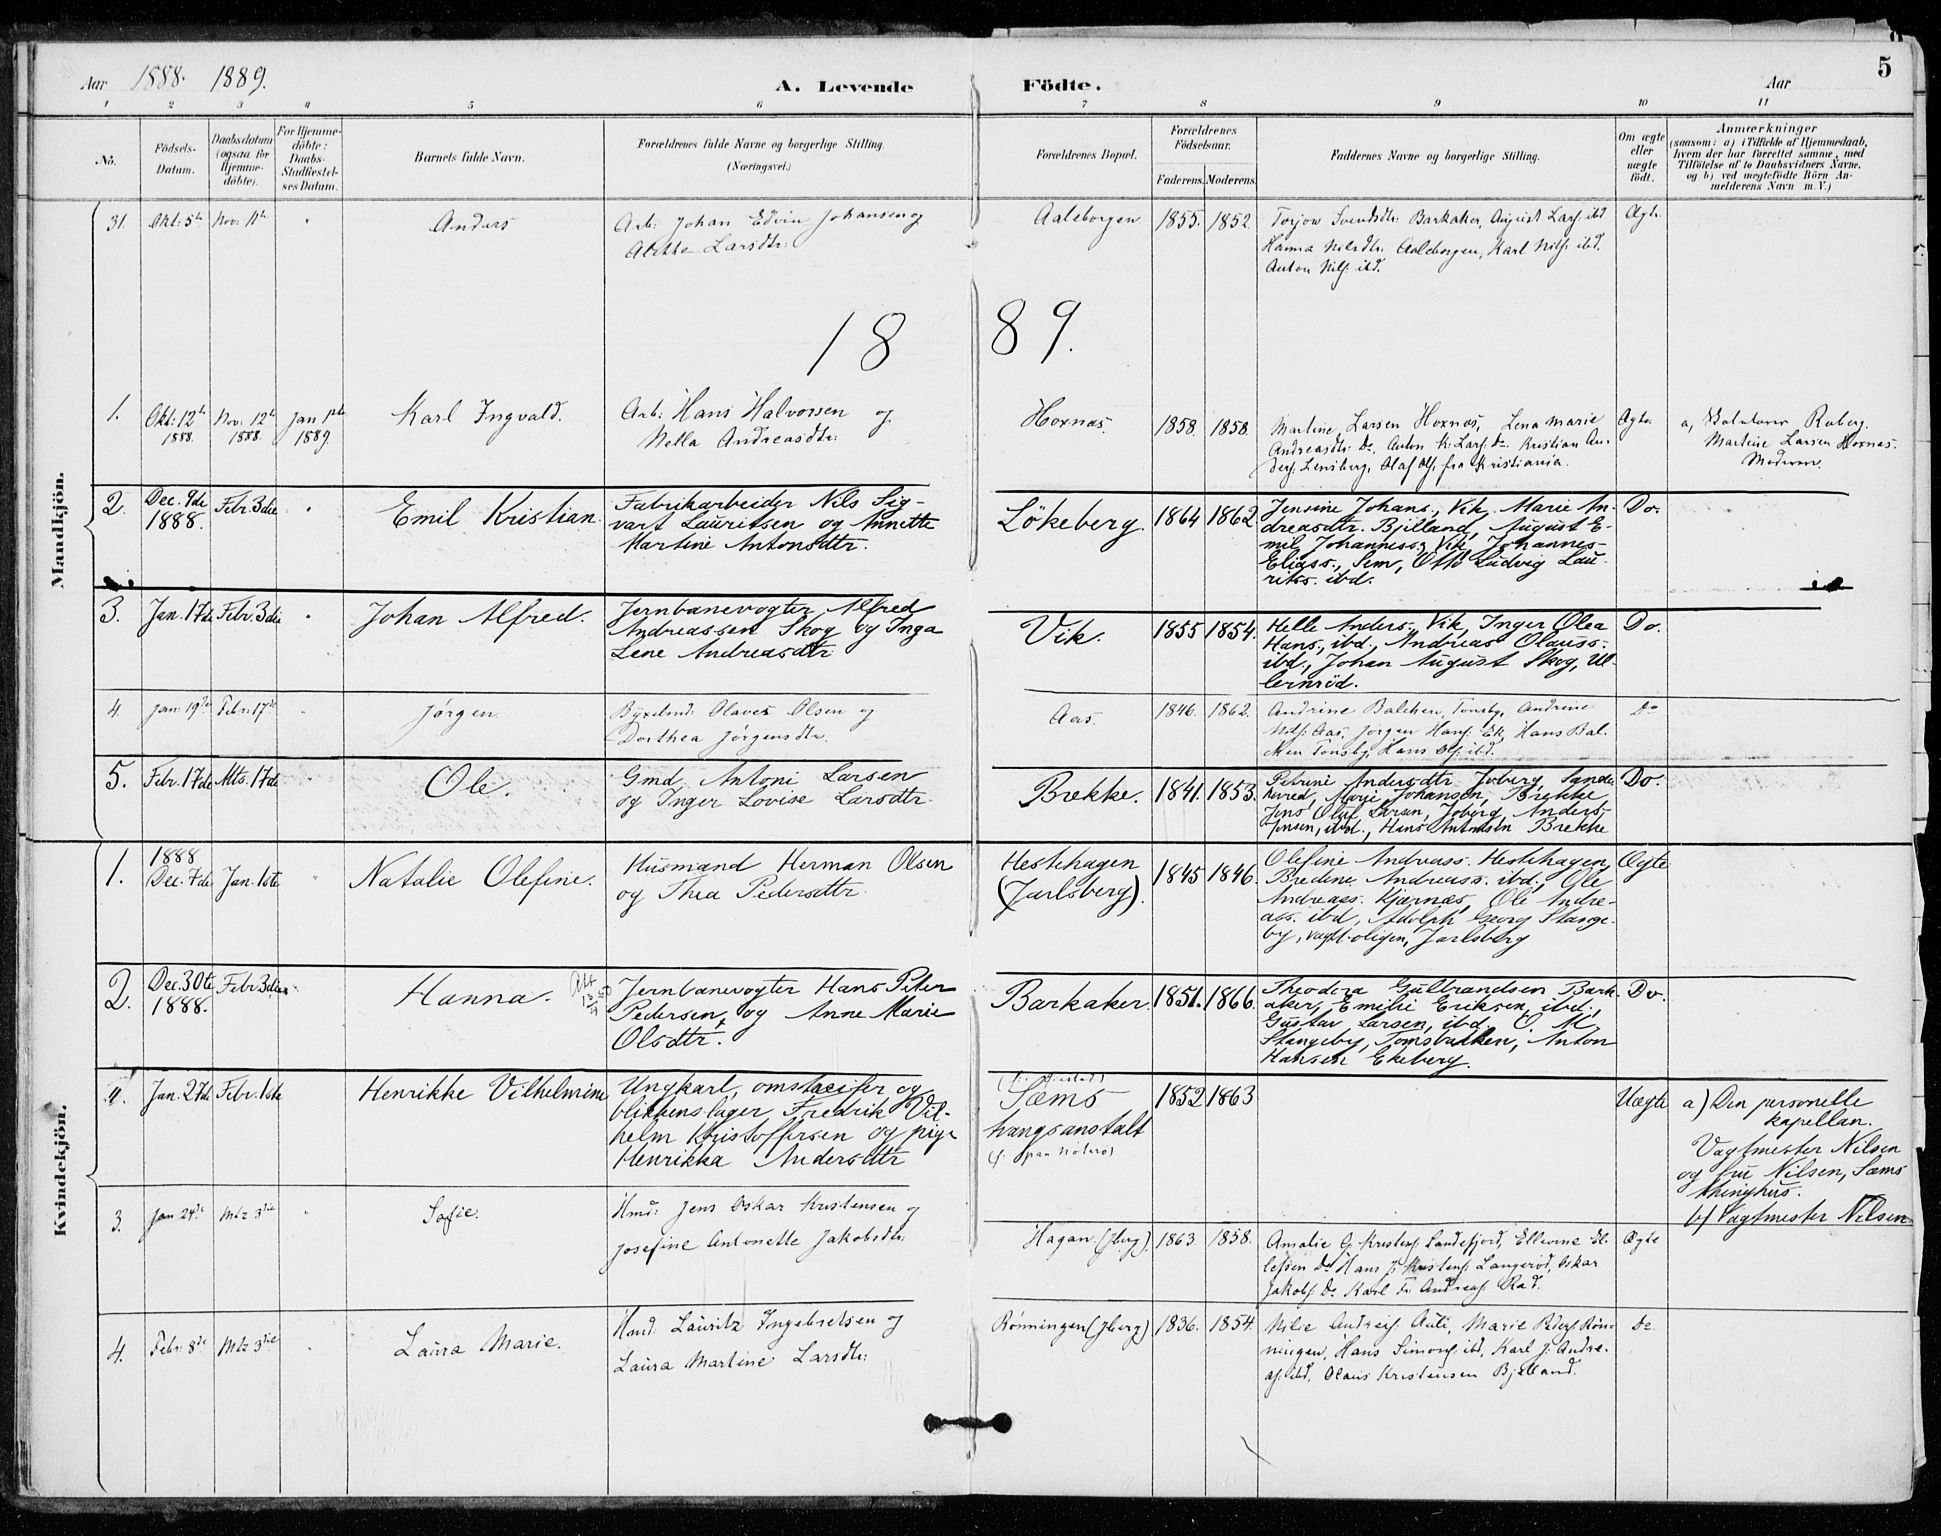 5
Aar 1888. 1889. A. Levende Födte. Aar
1 2 3 4 5 6 7 8 9 10 11
No.
Födsels-
Datum.
Daabsdatum
(ogsaa for
Hjemme-
döbte).
For Hjemme-
döbte:
Daabs-
Stadfæstel-
ses Datum.
Barnets fulde Navn.
Forældrenes fulde Navne og borgerlige Stilling.
(Næringsvei.)
Forældrenes Bopæl.
Forældrenes
Födselsaar.
Faderens. Moderens.
Faddernes Navne og borgerlige Stilling.
Om ægte
eller
uægte
födt.
Anmærkninger
(saasom: a) i Tilfælde af Hjemmedaab,
hvem der har forrettet samme, med
Tilföielse af to Daabsvidners Navne,
og b) ved uægtefödte Börn An-
melderens Navn m. V.)
Mandkjön.
31. Okt: 5te Nov: 11te " Anders
Arb: Johan Edvin Johansen og
Alette Larsdtr:
Aaleborgen 1855. 1852.
Torjow Svendsdtr: Barkaker, August Larss: ibd
Hanna Nilsdtr: Aaleborgen, Karl Nilss: ibd.
Anton Nilss: ibd.
Ægte
1889.
1. Okt: 12te 1888. Nov: 12te 1888. Jan 1ste 1889 Karl Ingvald.
Arb: Hans Halvorsen og
Nella Andreasdtr:
Hoxnæs. 1858. 1858.
Martine Larsen Hoxnæs, Lena Marie
Andreasdtr: Do. Anton K. Larss: Do. Kristian An-
derss: Lensberg, Olaf Olss: fra Kristiania.
Ægte.
a, Raberg.
Martine Larsen Hoxnæs.
Moderen.
2. Dec. 9de 1888. Febr. 3die " Emil Kristian.
Fabrikarbeider Nils Sig-
vart Lauritsen og Annette
Martine Antonsdtr.
Lökeberg. 1864 1862.
Jensine Johans., Vik, Marie An-
dreasdtr. Bjelland, August E-
mil Johanness., Vik, Johannes
Eliass., Sem, Otto Ludvig Lau-
rits. ibd.
Do.
3. Jan. 17de Febr. 3die " Johan Alfred.
Jernbanevogter Alfred
Andreassen Skog og Inga
Lene Andreasdtr.
Vik. 1855 1854.
Helle Anders., Vik, Inger Olea
Hans., ibd., Andreas Olauss.
ibd., Johan August Skog, Ul-
lernröd.
Do.
4. Jan: 19de Febr: 17de " Jørgen.
Olaves Olsen og
Dorthea Jørgensdtr.
Aas. 1846. 1862.
Andrine Balchen, Tønsbg, Andrine
Nilss: Aas, Jørgen Hanss: Ek, Hans Bal-
chen Tønsbg, Hans Olss: ibd.
Do
5. Febr. 17de Mts. 17de " Ole.
Gmd. Antoni Larsen
og Inger Lovise Larsdtr.
Brekke. 1841. 1853.
Petrine Andersdtr. Joberg, Sande-
herred, Marie Johansen, Brekke
Jens Olaf Larsen, Joberg, Anders
Jensen, ibd., Hans Antonsen Brekke
Do.
Kvindekjön.
1. 1888 Dec. 7de Jan. 1ste " Natalie Olefine.
Husmand Herman Olsen
og Thea Pedersdtr.
Hestehagen
(Jarlsberg). 1845 1846.
Olefine Andreass. Hestehagen,
Bredine Andreass. ibd., Ole
Andreass. Kjærnæs, Ole Andre-
ass. ibd, Adolph Georg Stange-
by, vagtboligen, Jarlsberg
Ægte
2. Dec. 30te 1888. Febr. 3die " Hanna.
Jernbanevogter Hans Peter
Pedersen, og Anne Marie
Olsdtr.
Barkaker. 1851. 1866.
Theodora Gulbrandsen Bark-
aker, Emilie Eriksen, ibd.,
Gustav Larsen, ibd. O. M.
Stangeby, Tomsbakken, Anton
Hansen Ekeberg.
Do.
Jan. 27de Febr. 1ste Henrikke Vilhelmine
Ungkarl, omstreifer og
blikkenslager Fredrik Vil-
helm Kristoffersen og pige
Henrikka Andersdtr
Sæms
tvangsanstalt
1852 1863
Uægte
a) Den personelle
kapellan.
Vagtmester Nilsen
og fru Nilsen, Sæms
thinghus.
b) Vagtmester Nilsen.
3. Jan 24de Mtz 3die " Sofie.
Hmd: Jens Oskar Kristensen og
Josefine Antonette Jakobsdtr:
Hagan (Jberg). 1863. 1858.
Amalie G. Kristenss: Sandefjord, Ellevine El-
lefsen Do. Hans J. Kristenss: Langerød, Oskar
Jakobss: Do. Karl Fr. Andreass: Rad.
Ægte
4. Febr: 8de Mtz 3die " Laura Marie.
Hmd: Lauritz Ingebretsen og
Laura Martine Larsdtr:
Rønningen (Jberg). 1836. 1854.
Milie Andreass: Auli, Marie Pederss: Røn-
ningen, Hans Simonss: ibd, Karl J. Andre-
ass: ibd. Olaus Kristensen Bjelland.
Do.